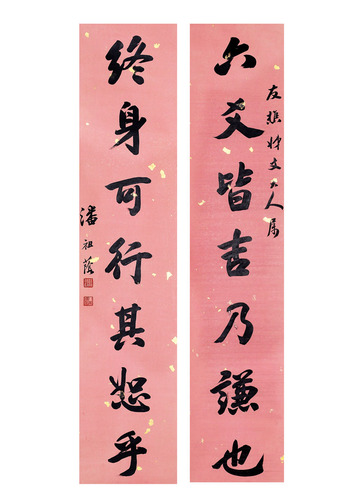 六爻皆吉乃謙也
友樵姊丈大人属
終身可行其恕乎
潘祖蔭